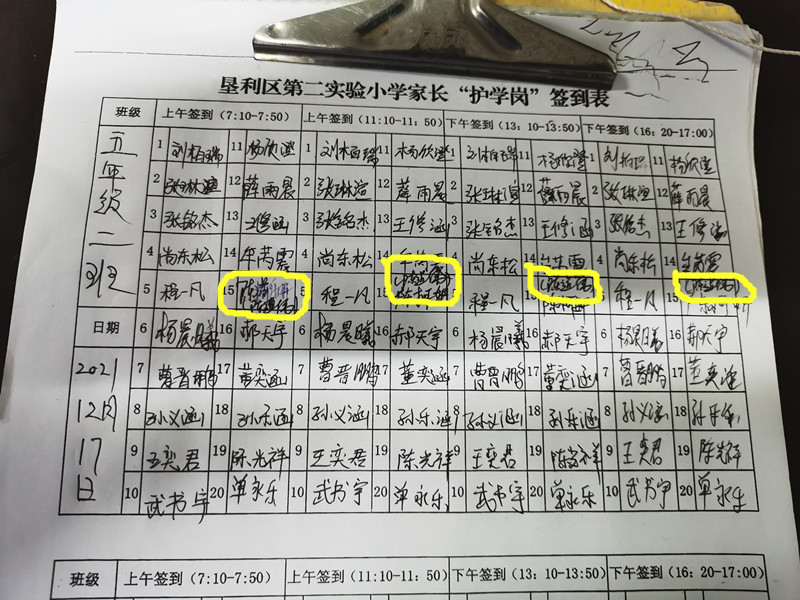 垦利区第二实验小学家长“护学岗”签到表
班级 上午签到（7:10-7:50） 上午签到（11:10-11:50） 下午签到（13:10-13:50） 下午签到（16:20-17:00）
五年级二班
1 刘柏瑞 11 杨欣澄 1 刘柏瑞 11 杨欣澄 1 刘柏瑞 11 杨欣澄 刘柏瑞 11 杨欣澄
2 张琳渲 12 薛雨晨 2 张琳渲 12 薛雨晨 2 张琳渲 12 薛雨晨 2 张琳渲 12 薛雨晨
3 张铭杰 13 王修涵 3 张铭杰 13 王修涵 3 张铭杰 13 王修涵 3 张铭杰 13 王修涵
4 尚东松 14 牟芮霆 4 尚东松 14 4 尚东松 14 4 尚东松 14 牟芮霆
5 程一凡 15 5 程一凡 15 程一凡 15 5 程一凡 15
日期 6 杨晨曦 16 郝天宇 6 杨晨曦 16 郝天宇 6 杨晨曦 16 郝天宇 6 杨晨曦 16 郝天宇
2021
12月
17
日
7 曹晋鹏 17 董奕涵 7 曹晋鹏 17 董奕涵 7 曹晋鹏 17 董奕涵 7 曹晋鹏 17 董奕涵
8 孙义涵 18 孙乐涵 8 孙义涵 18 孙乐涵 8 孙义涵 18 孙乐涵 8 孙义涵 18 孙乐涵
9 王奕君 19 陈光祥 9 王奕君 19 陈光祥 9 王奕君 19 陈光祥 9 王奕君 19 陈光祥
10 武书宇 20 单永乐 10 武书宇 20 单永乐 10 武书宇 20 单永乐 10 武书宇 20 单永乐
班级 上午签到（7:10-7:50） 上午签到（11:10-11:50） 下午签到（13:10-13:50） 下午签到（16:20-17:00）